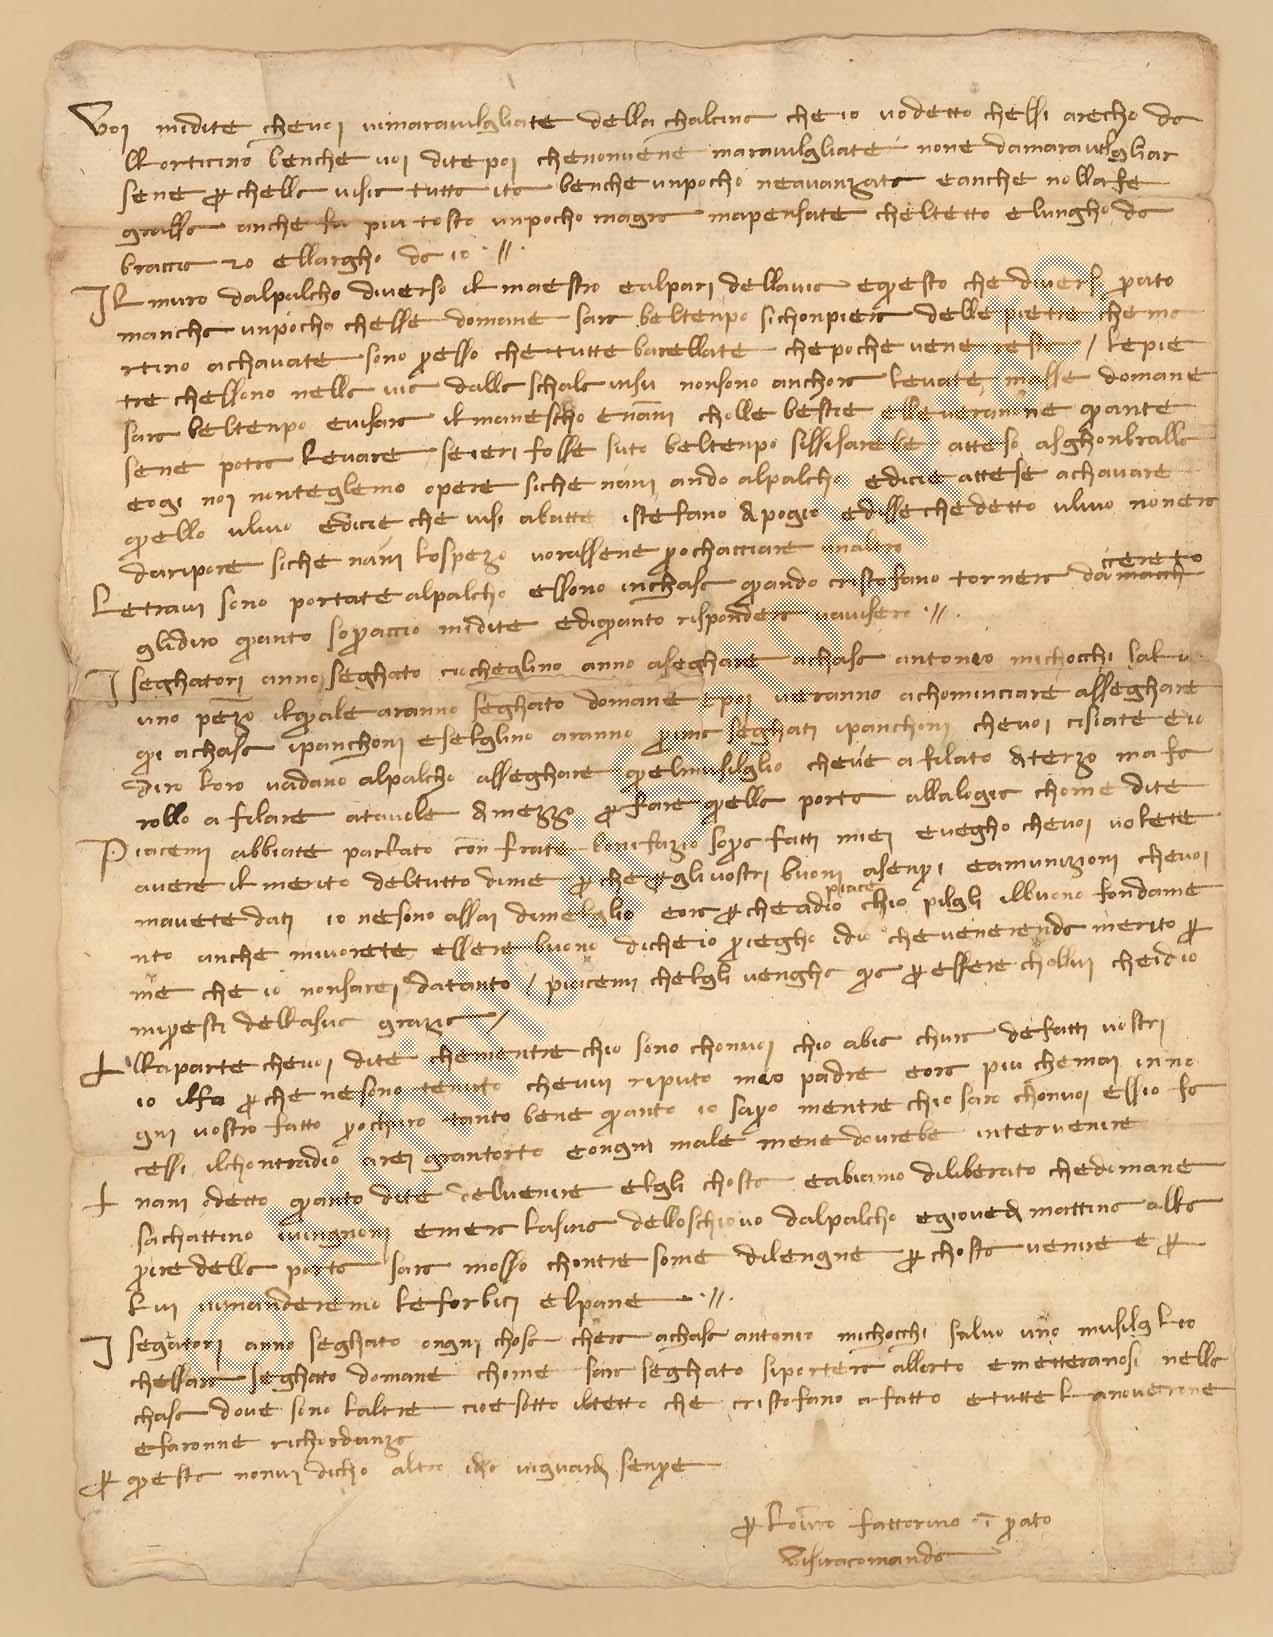 Voi midite chevoi vimaravilgliate della chalcina che io vodetto chessi arecho da
llorticino benche voi dite poi chenonvene maravilgliate none damaravilgliar
sene p chella visie tutta ita benche unpocho neavanzata eanche nolla fe
grassa anche fu piu tosto unpocho magra mapensate cheltetto elungho da
braccia 20 ellargho da 10 . // .
Il muro dalpalcho diverso il maestro ealpari dellavia eqesto che diverso prato
mancha unpocho chesse domane sara beltenpo sichonpiera delle pietre chema
rtino achavate sono presso chetutte barellate chepoche vene resta / lepie
tre chessono nella via dalla schala insu nonsono anchora levate masse domane
sara beltenpo evisara ilmanescho enanni cholle bestie elleveranone qante
sene potra levare seieri fosse suto beltenpo sissisarebe atteso asghonbralla
eogi noi nonteglemo opere siche nanni ando alpalcho edicie attese achavare
qello ulivo edicie che visi abatte istefano dpogio edisse chedetto ulivo nonera
daripore siche nanni lospezo vorassene prochacciare unaltro
cereto
Letravi sono portate alpalcho essono inchasa qando cristofano tornera da
glidiro qanto sopraccio midite ediqanto rispondera vavisero . // .
I seghatori anno seghato cioche glino anno aseghare achasa antonio michocchi salvo
uno pezo ilqale aranno seghato domane epoi veranno achominciare asseghare
qi achasa ipanchoni eselglino aranno prima seghati ipanchoni chevoi cisiate eio
diro loro vadano alpalcho asseghare qelmusilglio cheve afilato dterzo mafa
rollo afilare atavole dmezzo p fare qella porta allalogia chome dite
Piacemi abbiate parlato con frate bonifazio sopra fatti miei evegho chevoi volette
avere il merito deltutto dime p che gli vostri buoni asenpri eamunizioni chevoi
mavete dati io nesono assai dimelglio eora p che adio piace chio pilgli ilbuono fondame
nto anche mivorete essere buono diche io priegho idio chevenerenda merito p
me che io nonsarei datanto / piacemi chelgli vengha qa p essere chollui cheidio
mipresti dellasua grazia /
Allaparte chevoi dite chementre chio sono chonvoi chio abia chura defatti vostri
io ilfo p che nesono tenuto chevvi riputo mio padre eora piu chemai inno
gni vostro fatto prochuro tanto bene qanto io sapro mentre chio saro chonvoi essio fa
cessi ilchontradio arei grantorto eongni male mene dovrebe intervenire
nanni odetto qanto dite delvenire elgli chosta eabiamo diliberato chedomane
sachattino ivingnioni emera lasina delloschiovo dalpalcho egiovedi mattina alla
prire della porta sara mosso chontre some dilengne p chosta venire e p
lui vimanderemo leforbici elpane . // .
I segatori anno seghato ongni chosa chera achasa antonio michocchi salvo uno musilglio
chessara seghato domane chome sara seghato siportera allorto emetteranosi nella
chasa dove sono laltre cioe sotto iltetto che cristofano afatto etutte lanoverone
efaronne richordanza
p qesta nonvi dicho altro idio viguardi senpre
p loivo fattorino in prato
visiracomanda